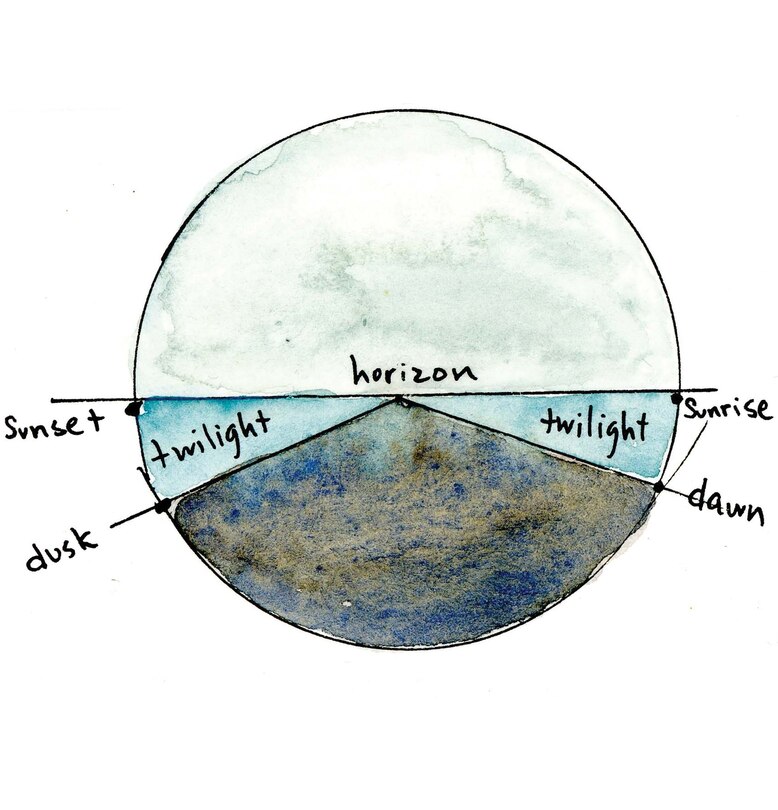 horizon
Sunset
Sunrise
twilight
twilight
dawn
dusk